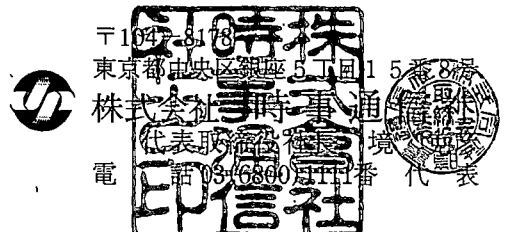 〒104-8178
東京都中央区銀座5丁目15番8号
株式会社 時事通信社
代表取締役社長 境
電話 03(6800)1111番 代表
株式会社
時事通信
社印